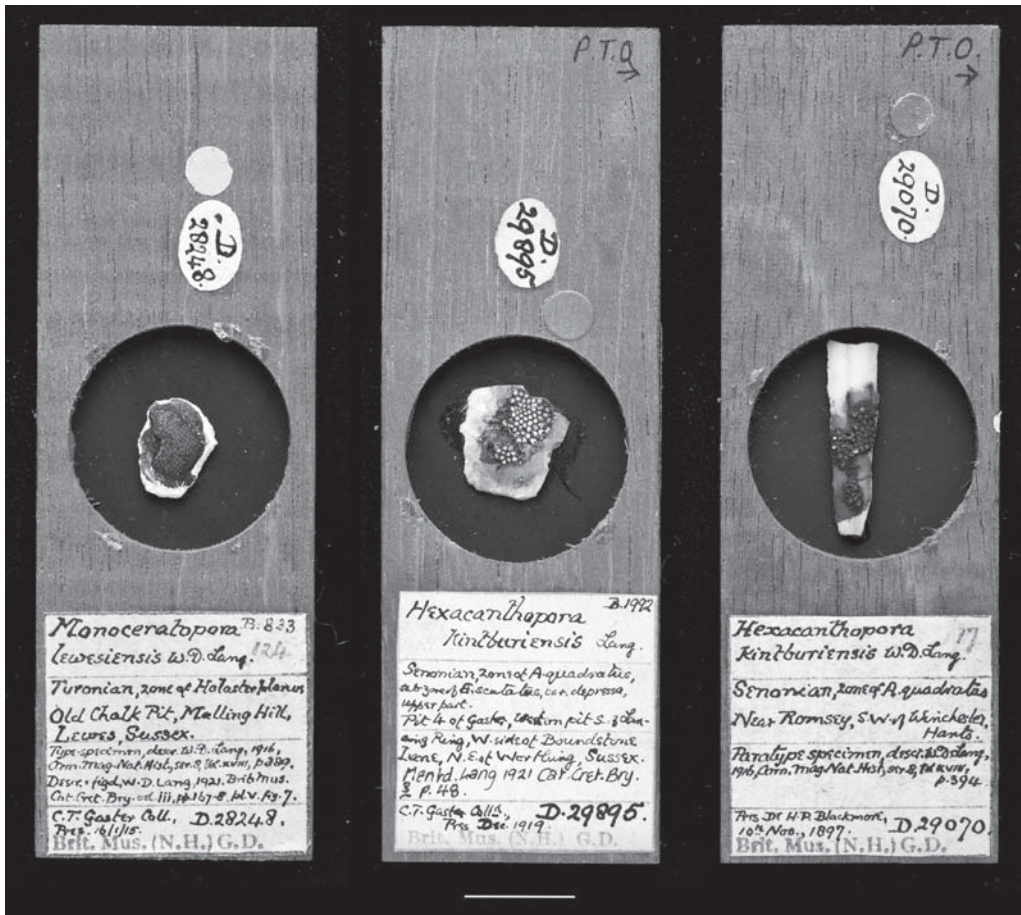 D.
28248.
Monoceratopora B.833
lewesiensis W.D. Lang. 124
Turonian, zone of Holaster planus
Old Chalk Pit, Malling Hill,
Lewes, Sussex.
Type-specimen, descr. W.D. Lang, 1916,
Ann. Mag. Nat. Hist., ser. 8, Vol. xviii, p. 389.
Descr. & figd, W.D. Lang, 1921. Brit. Mus.
Cat. Cret. Bry. vol. iii, pp. 167-8, pl. v. fig. 7.
C.T. Gaster Coll., D.28248.
Pres. 16/1/15.
Brit. Mus. (N.H.) G.D.
P.T.O
D.
29895
Hexacanthopora B.1992
kintburiensis Lang.
Senonian, zone of A. quadratus,
subzone of E. scutatus, var. depressa,
upper part.
Pit 4 of Gaster, western pit S. of Lan-
cing Ring, W. side of Boundstone
Lane, N. East Worthing, Sussex.
Mentd. Lang 1921 Cat. Cret. Bry.
p. 48.
C.T. Gaster Colln.,
Pres. Dec. 1919. D.29895.
Brit. Mus. (N.H.) G.D.
P.T.O.
D.
29070.
Hexacanthopora 17
kintburiensis W.D. Lang.
Senonian, zone of A. quadratus
Near Romsey, S.W. of Winchester,
Hants.
Paratype specimen, descr. W.D. Lang,
1916, Ann. Mag. Nat. Hist., ser. 8, Vol. xviii,
p. 394
Pres. Dr H.P. Blackmore,
10th Nov., 1897. D.29070.
Brit. Mus. (N.H.) G.D.